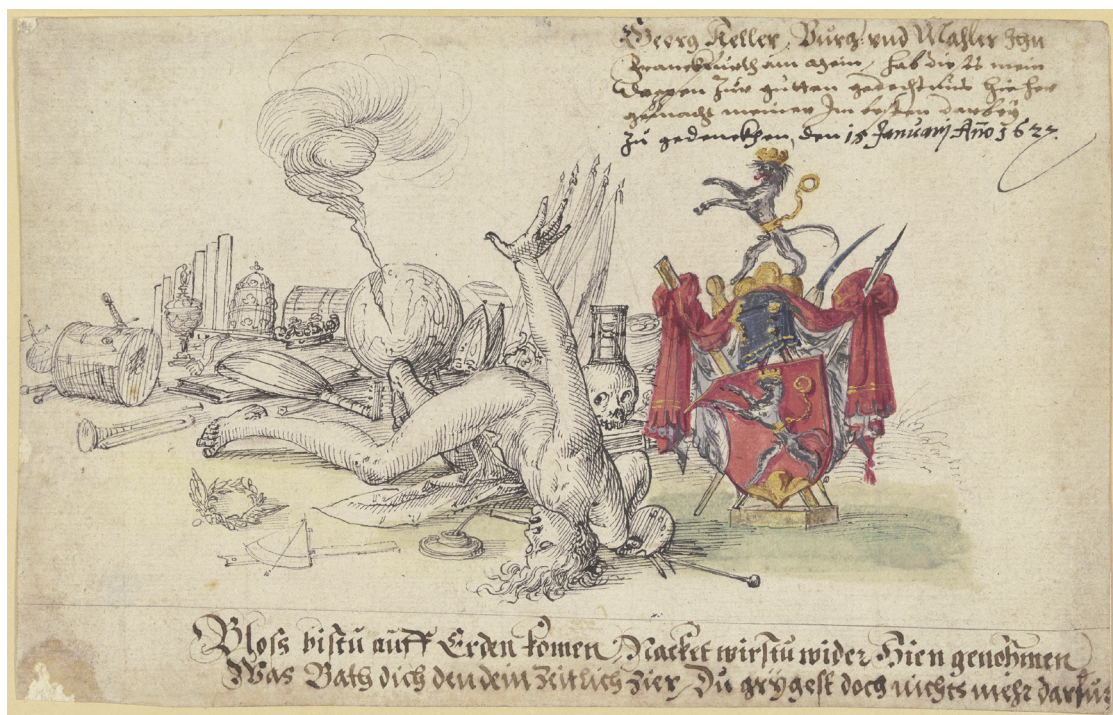 Georg Keller, Burg: vnd Mahler Zu
Franckfurth am Mein, hab diß mein
Wappen zur gutten gedechtnus hieher
gemacht meiner Im besten darbey
Zu gedenckhen, den 15 Januarj Año 162
Bloss bistu auff Erden komen, Nacket wirstu wider Hien genohmen
Was Bath dich den dein Zeitlich Zier, Du grÿgest doch nichts mehr darfur